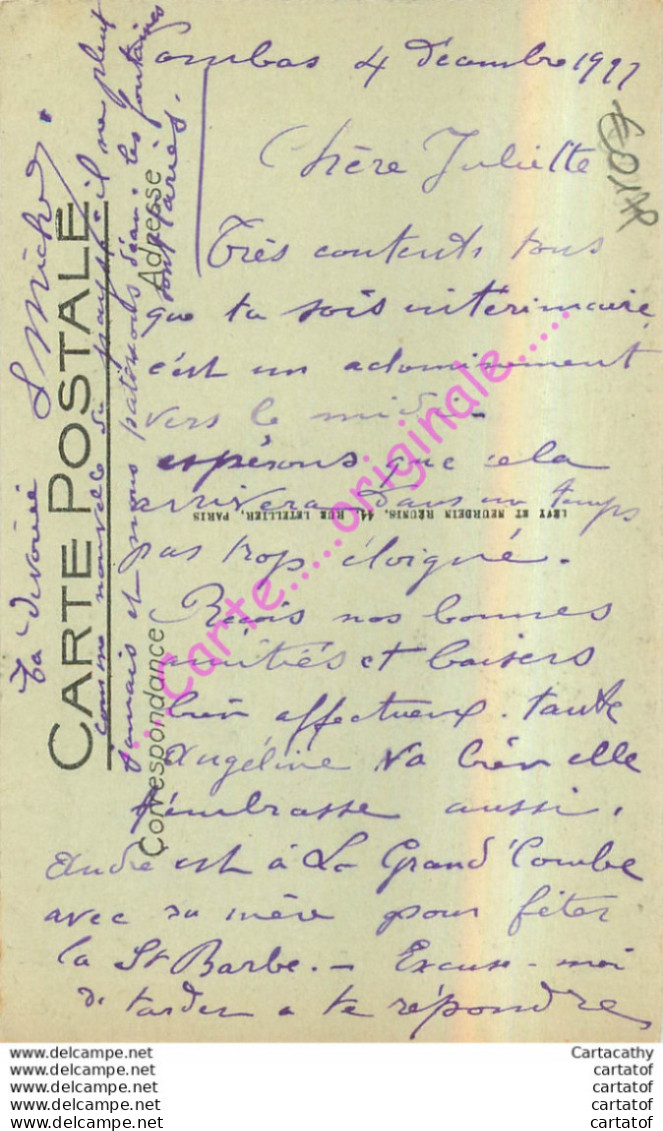 Combas 4 décembre 19
Chère Juliette
Très contents tous
que ta sois intérimaire
c'est un acheminement
vers le midi -
espérons que cela
arrivera dans un temps
pas trop éloigné.
Reçois nos bonnes
amitiés et baisers
bien affectueux. tante
Angéline va bien elle
t'embrasse aussi.
André est à La Grand'Combe
avec sa mère pour fêter
la St Barbe. - Excuse-moi
de tarder a te répondre
Ta dévouée
L Michel
CARTE POSTALE
comme nouvelle du pays il ne pleut
jamais et nous patissons d'eau. les fontaines
sont taries.
Correspondance
Adresse
LEVY ET NEURDEIN RÉUNIS, 44, RUE LETELLIER, PARIS
Carte......originale......
www.delcampe.net
www.delcampe.net
www.delcampe.net
www.delcampe.net
www.delcampe.net
Cartacathy
cartatof
cartatof
cartatof
cartatof